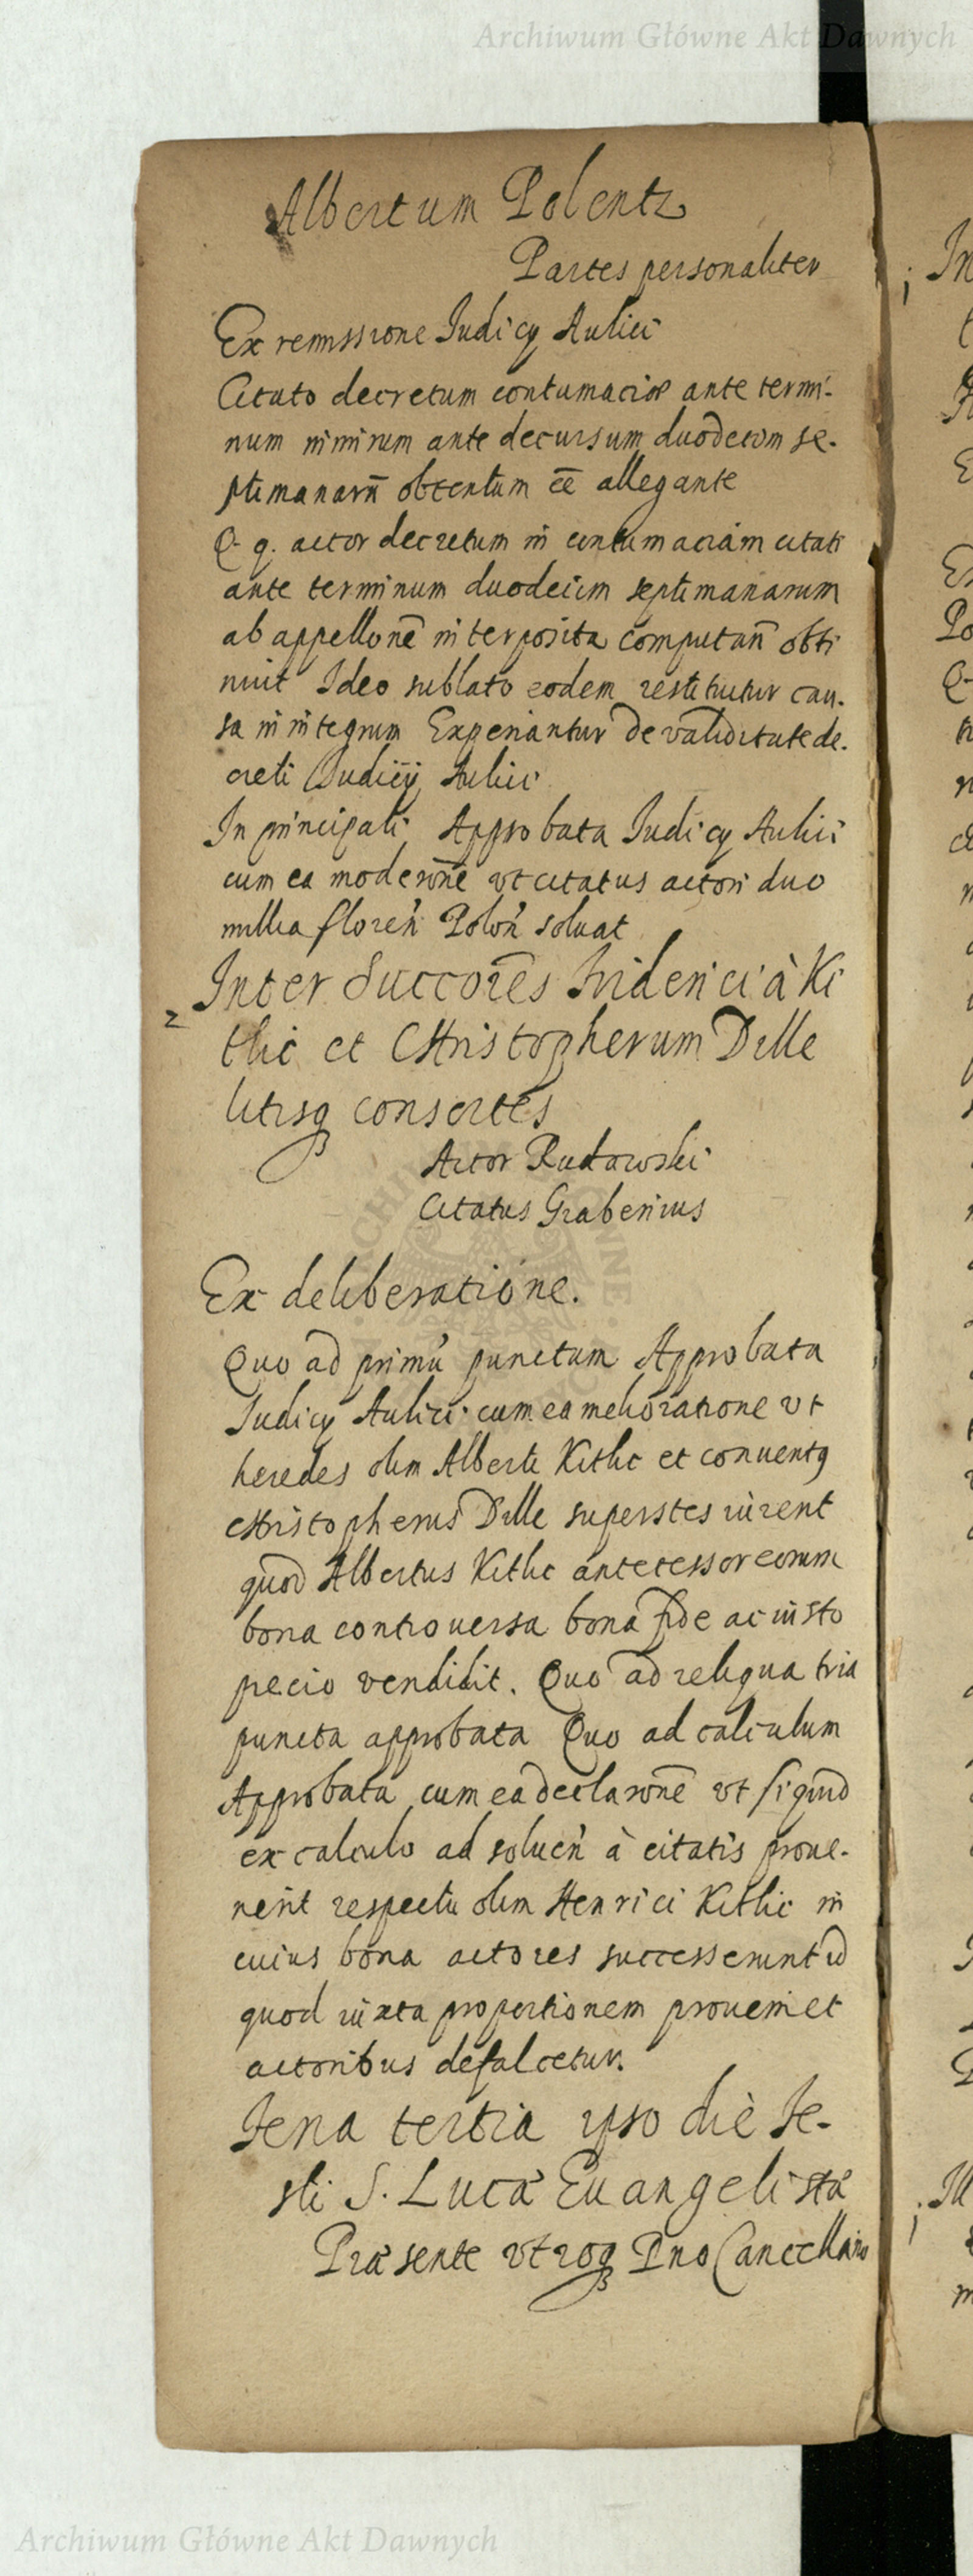 Archiwum Główne Akt Dawnych
Albertum Polentz
Partes personaliter
Ex remissione Iudicy Aulici
Citato decretum contumaciæ ante termi-
num nimirum ante decursum duodecim se-
ptimanarū obtentum eē allegante
Q. q. actor decretum in contumaciam citati
ante terminum duodecim septimanarum
ab appellonē interposita computan̄ obti
nuit Ideo sublato eodem restituitur cau-
sa in integrum Experiantur de validitate de-
creti Iudicij Aulici
In principali Approbata Iudicy Aulici
cum ea moderōne vt citatus actori duo
millia floren̄ Polon̄ soluat
2 Inter Succōres Fridericj à Ki
tlic et CHristopherum Dille
litisq consortes
Actor Rudowski
Citatus Grabenius
Ex deliberatione.
Quo ad primū punctum Approbata
Iudicy Aulici cum ea melioratione vt
heredes olim Alberti Kitlic et conuentq
CHristopherus Dille superstes iurent
quod Albertus Kitlic antecessor eorum
bona controuersa bona fide ac iusto
precio vendidit. Quo ad reliqua tria
puncta approbata Quo ad calculum
Approbata cum ea declarōnē vt si quid
ex calculo ad soluen̄ à citatis proue-
nerit respectu olim Henrici Kitlic in
cuius bona actores successerunt id
quod iuxta proportionem proueniet
actoribus defalcetur.
Feria tertia ipso die Fe-
sti S. Lucæ Euangelistæ
Præsente vtroq Dno Cancellario
Archiwum Główne Akt Dawnych